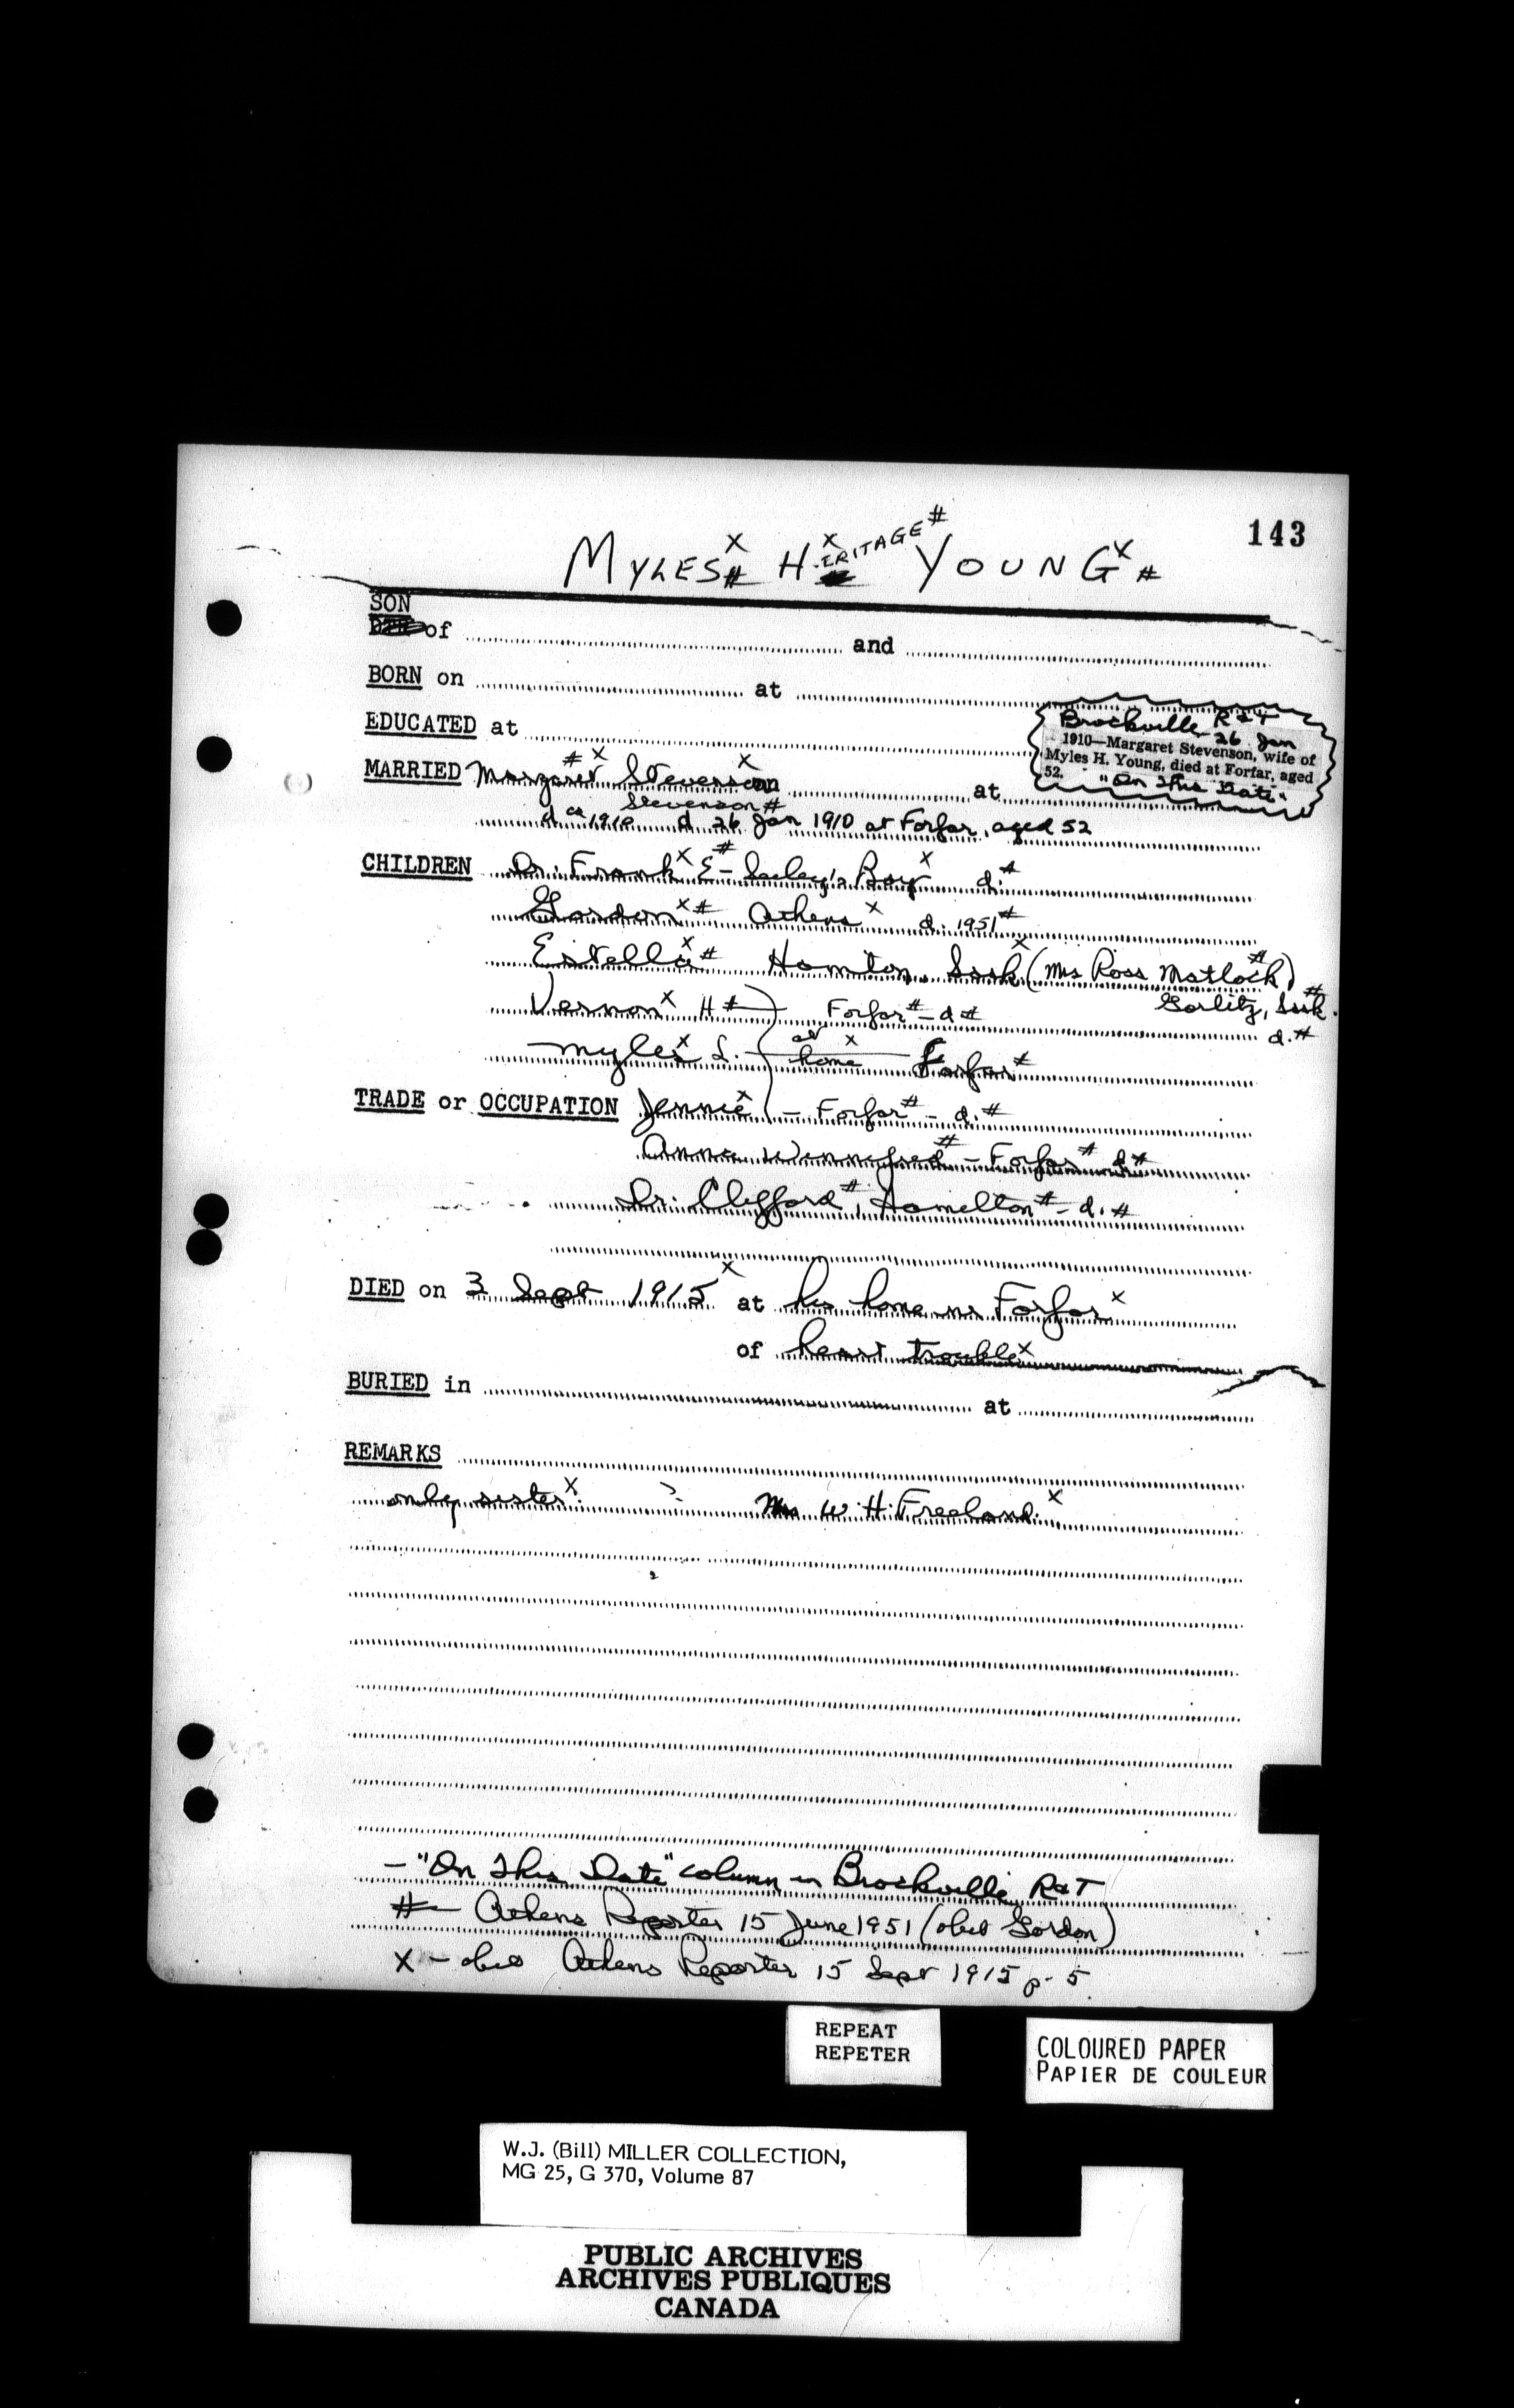 143
MYLES x # H x ERITAGE # YOUNG x #
SON
of ... and
BORN on ... at
EDUCATED at
Brockville R&T
26 Jan
1910—Margaret Stevenson, wife of
Myles H. Young, died at Forfar, aged
52. "On This Date"
MARRIED Margaret # x Stevenson x at
Stevenson #
d ca 1910 d 26 Jan 1910 at Forfar, aged 52
CHILDREN Dr. Frank x E # - Seeley's Bay x d. #
Gordon x # Athens x d. 1951 #
Estella x # Sask. x (Mrs Ross Matlock) #
Gorlitz, Sask. #
d. #
Vernon x H # Forfar # - d #
Myles x L. at home x Forfar #
TRADE or OCCUPATION Jennie x - Forfar # - d. #
Anna Winnefred # - Forfar # d #
Dr. Clifford #, Hamilton # - d. #
DIED on 3 Sept 1915 x at his home nr Forfar x
of heart trouble x
BURIED in ... at
REMARKS
only sister x : ? Mrs W. H. Freeland x
- "On This Date" column in Brockville R&T
# - Athens Reporter 15 June 1951 (obit Gordon)
x - obit Athens Reporter 15 Sept 1915 p. 5
REPEAT
REPETER
COLOURED PAPER
PAPIER DE COULEUR
W.J. (Bill) MILLER COLLECTION,
MG 25, G 370, Volume 87
PUBLIC ARCHIVES
ARCHIVES PUBLIQUES
CANADA